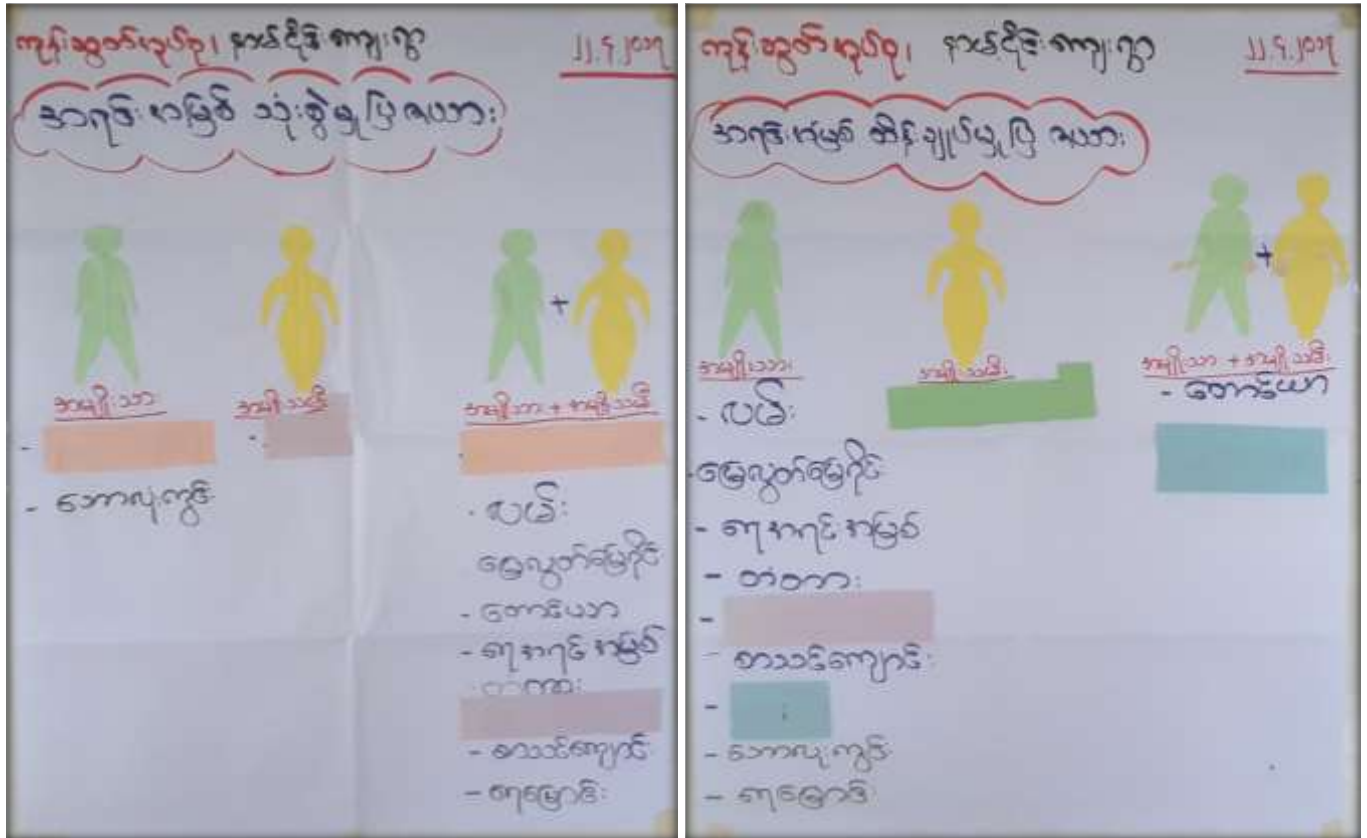 ကုန်းဆွတ်အုပ်စု၊ နမ်ငိုင်းကျေးရွာ
၂၂.၄.၂၀၁၇
အရင်းအမြစ် သုံးစွဲမှုပြ ဇယား
အမျိုးသား
အမျိုးသမီး
အမျိုးသား + အမျိုးသမီး
-
- ဘောလုံးကွင်း
- လမ်း
မြေလွတ်မြေရိုင်း
- တောင်ယာ
- ရေအရင်းအမြစ်
တံတား
- စာသင်ကျောင်း
- ရေမြောင်း
ကုန်းဆွတ်အုပ်စု၊ နမ်ငိုင်းကျေးရွာ
၂၂.၄.၂၀၁၇
အရင်းအမြစ် ထိန်းချုပ်မှုပြ ဇယား
အမျိုးသား
- လမ်း
- မြေလွတ်မြေရိုင်း
- ရေအရင်းအမြစ်
- တံတား
-
စာသင်ကျောင်း
-
- ဘောလုံးကွင်း
- ရေမြောင်း
အမျိုးသမီး
အမျိုးသား + အမျိုးသမီး
- တောင်ယာ